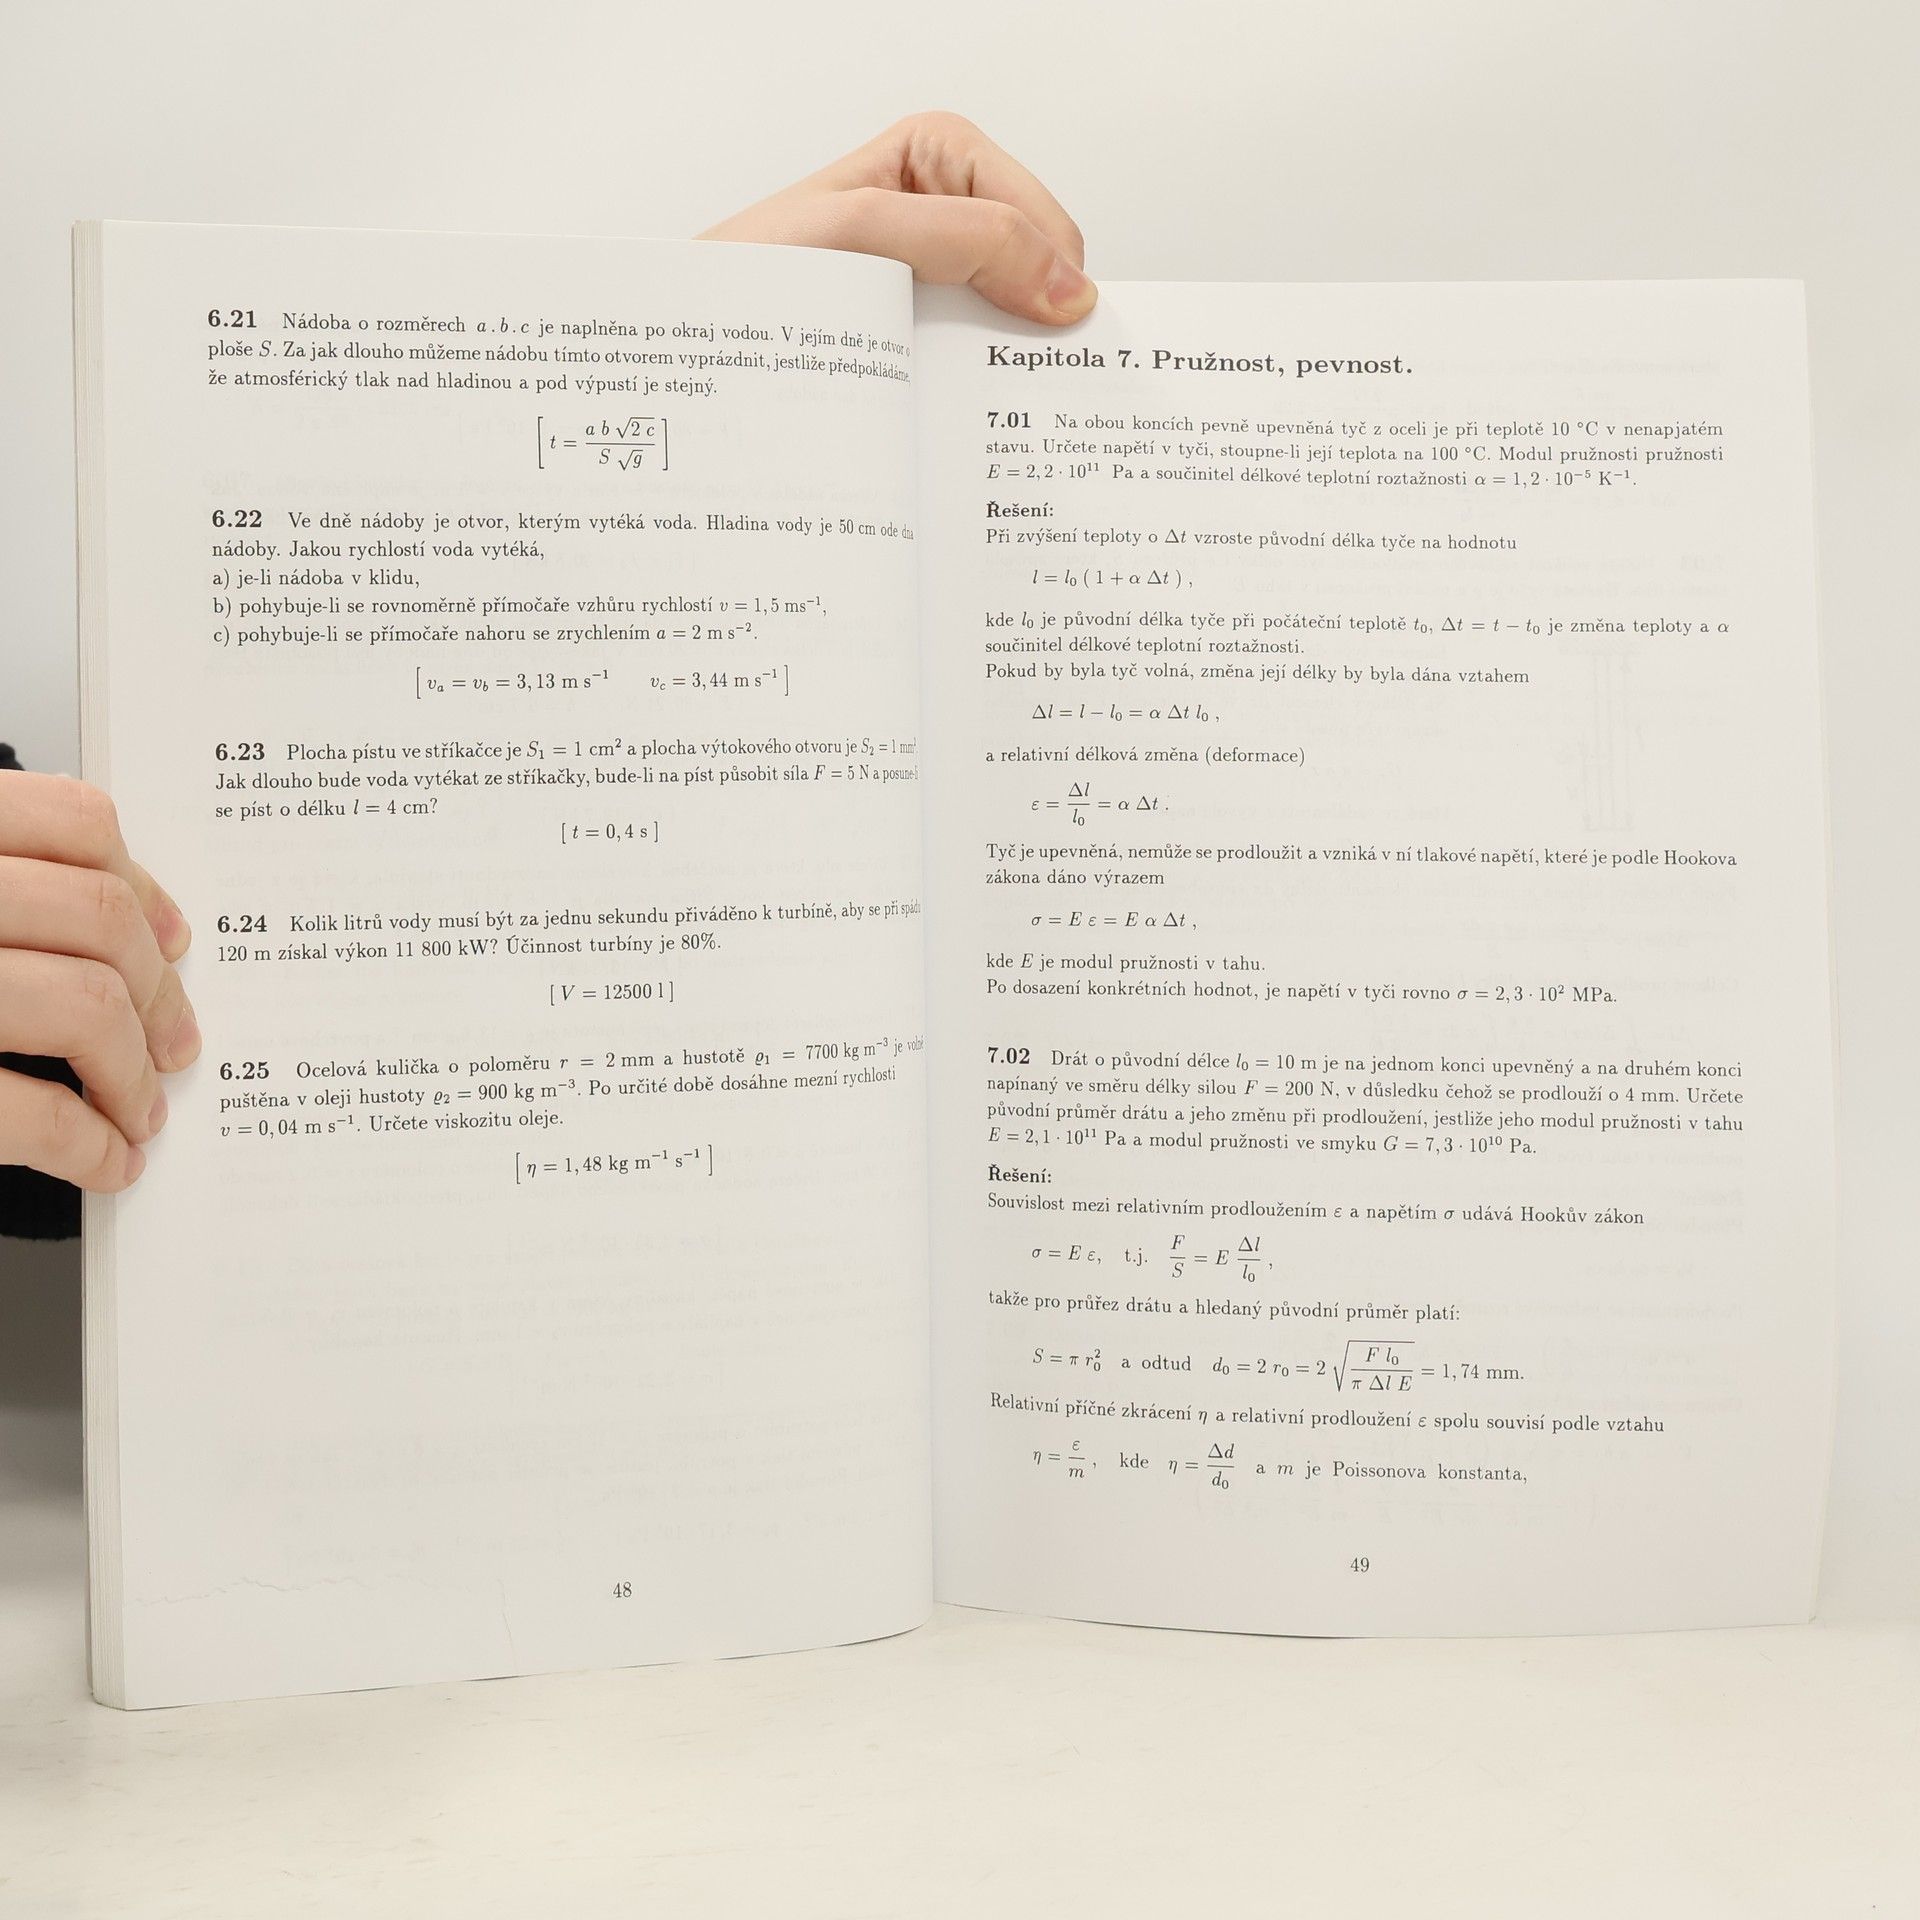 6.21 Nádoba o rozměrech a . b . c je naplněna po okraj vodou. V jejím dně je otvor o
ploše S. Za jak dlouho můžeme nádobu tímto otvorem vyprázdnit, jestliže předpokládáme,
že atmosférický tlak nad hladinou a pod výpustí je stejný.
[ t = a b √2 c / S √g ]
6.22 Ve dně nádoby je otvor, kterým vytéká voda. Hladina vody je 50 cm ode dna
nádoby. Jakou rychlostí voda vytéká,
a) je-li nádoba v klidu,
b) pohybuje-li se rovnoměrně přímočaře vzhůru rychlostí v = 1,5 ms⁻¹,
c) pohybuje-li se přímočaře nahoru se zrychlením a = 2 m s⁻².
[ vₐ = v_b = 3,13 m s⁻¹ v_c = 3,44 m s⁻¹ ]
6.23 Plocha pístu ve stříkačce je S₁ = 1 cm² a plocha výtokového otvoru je S₂ = 1 mm²
Jak dlouho bude voda vytékat ze stříkačky, bude-li na píst působit síla F = 5 N a posune-li
se píst o délku l = 4 cm?
[ t = 0,4 s ]
6.24 Kolik litrů vody musí být za jednu sekundu přiváděno k turbíně, aby se při spádu
120 m získal výkon 11 800 kW? Účinnost turbíny je 80%.
[ V = 12500 l ]
6.25 Ocelová kulička o poloměru r = 2 mm a hustotě ϱ₁ = 7700 kg m⁻³ je volně
puštěna v oleji hustoty ϱ₂ = 900 kg m⁻³. Po určité době dosáhne mezní rychlosti
v = 0,04 m s⁻¹. Určete viskozitu oleje.
[ η = 1,48 kg m⁻¹ s⁻¹ ]
48
Kapitola 7. Pružnost, pevnost.
7.01 Na obou koncích pevně upevněná tyč z oceli je při teplotě 10 °C v nenapjatém
stavu. Určete napětí v tyči, stoupne-li její teplota na 100 °C. Modul pružnosti pružnosti
E = 2,2 · 10¹¹ Pa a součinitel délkové teplotní roztažnosti α = 1,2 · 10⁻⁵ K⁻¹.
Řešení:
Při zvýšení teploty o Δt vzroste původní délka tyče na hodnotu
l = l₀ ( 1 + α Δt ) ,
kde l₀ je původní délka tyče při počáteční teplotě t₀, Δt = t − t₀ je změna teploty a α
součinitel délkové teplotní roztažnosti.
Pokud by byla tyč volná, změna její délky by byla dána vztahem
Δl = l − l₀ = α Δt l₀ ,
a relativní délková změna (deformace)
ε = Δl / l₀ = α Δt .
Tyč je upevněná, nemůže se prodloužit a vzniká v ní tlakové napětí, které je podle Hookova
zákona dáno výrazem
σ = E ε = E α Δt ,
kde E je modul pružnosti v tahu.
Po dosazení konkrétních hodnot, je napětí v tyči rovno σ = 2,3 · 10² MPa.
7.02 Drát o původní délce l₀ = 10 m je na jednom konci upevněný a na druhém konci
napínaný ve směru délky silou F = 200 N, v důsledku čehož se prodlouží o 4 mm. Určete
původní průměr drátu a jeho změnu při prodloužení, jestliže jeho modul pružnosti v tahu
E = 2,1 · 10¹¹ Pa a modul pružnosti ve smyku G = 7,3 · 10¹⁰ Pa.
Řešení:
Souvislost mezi relativním prodloužením ε a napětím σ udává Hookův zákon
σ = E ε, t.j. F / S = E Δl / l₀ ,
takže pro průřez drátu a hledaný původní průměr platí:
S = π r₀² a odtud d₀ = 2 r₀ = 2 √(F l₀ / π Δl E) = 1,74 mm.
Relativní příčné zkrácení η a relativní prodloužení ε spolu souvisí podle vztahu
η = ε / m , kde η = Δd / d₀ a m je Poissonova konstanta,
49